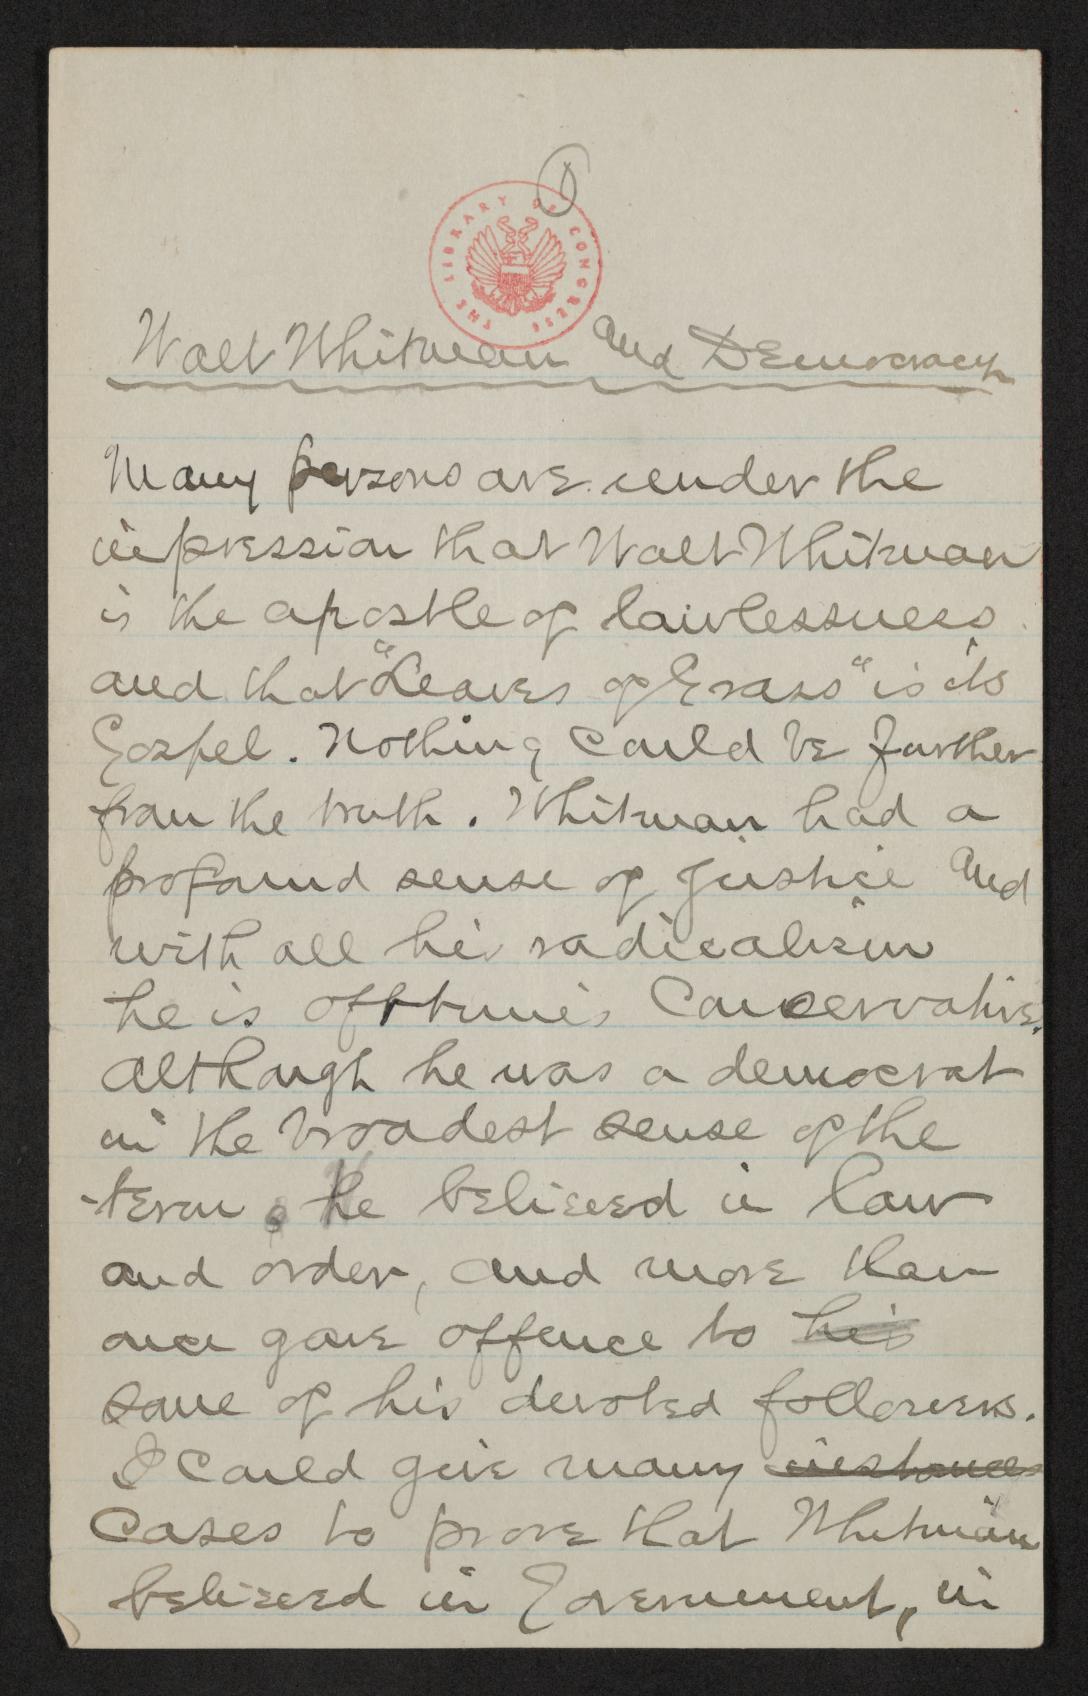 1
THE LIBRARY OF CONGRESS
Walt Whitman and Democracy
Many persons are under the
impression that Walt Whitman
is the apostle of lawlessness
and that "Leaves of Grass" is its
Gospel. Nothing could be further
from the truth. Whitman had a
profound sense of justice and
with all his radicalism
he is ofttimes Conservative.
Although he was a democrat
in the broadest sense of the
term. he believed in law
and order, and more than
once gave offence to his
some of his devoted followers.
I could give many instances
Cases to prove that Whitman
believed in Government, in